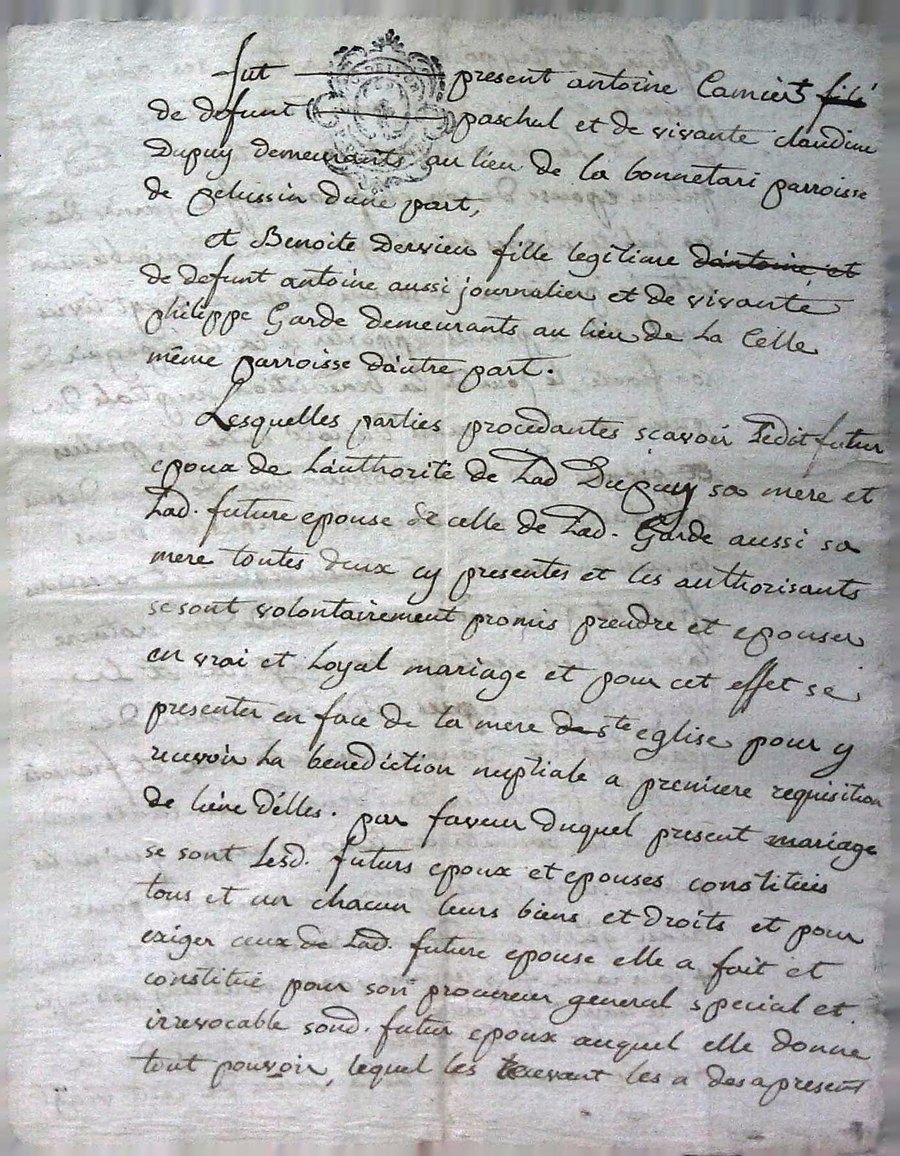 fut present antoine Camier fils
de defunt paschal et de vivante claudine
Dupuy demeurants au lieu de la bonnetari parroisse
de pelussin dune part,
et Benoite Dervieu fille legitime dantoine et
de defunt antoine aussi journalier et de vivante
philippe Garde demeurants au lieu de La Celle
même parroisse dautre part.
Lesquelles parties procedantes scavoir Ledit futur
epoux de Lauthorité de Lad Dupuy sa mere et
Lad. future epouse de celle de Lad. Garde aussi sa
mere toutes deux cy presentes et les authorisants
se sont volontairement promis prendre et epouser
en vrai et Loyal mariage et pour cet effet se
presenter en face de la mere de ste eglise pour y
recevoir La benediction nuptiale a premiere requisition
de lune d'elles. par faveur duquel present mariage
se sont Lesd. futurs epoux et epouses constitués
tous et un chacun leurs biens et droits et pour
exiger ceux de Lad. future epouse elle a fait et
constitué pour son procureur general special et
irrevocable sond. futur epoux auquel elle donne
tout pouvoir, lequel les recevant les a des apresent